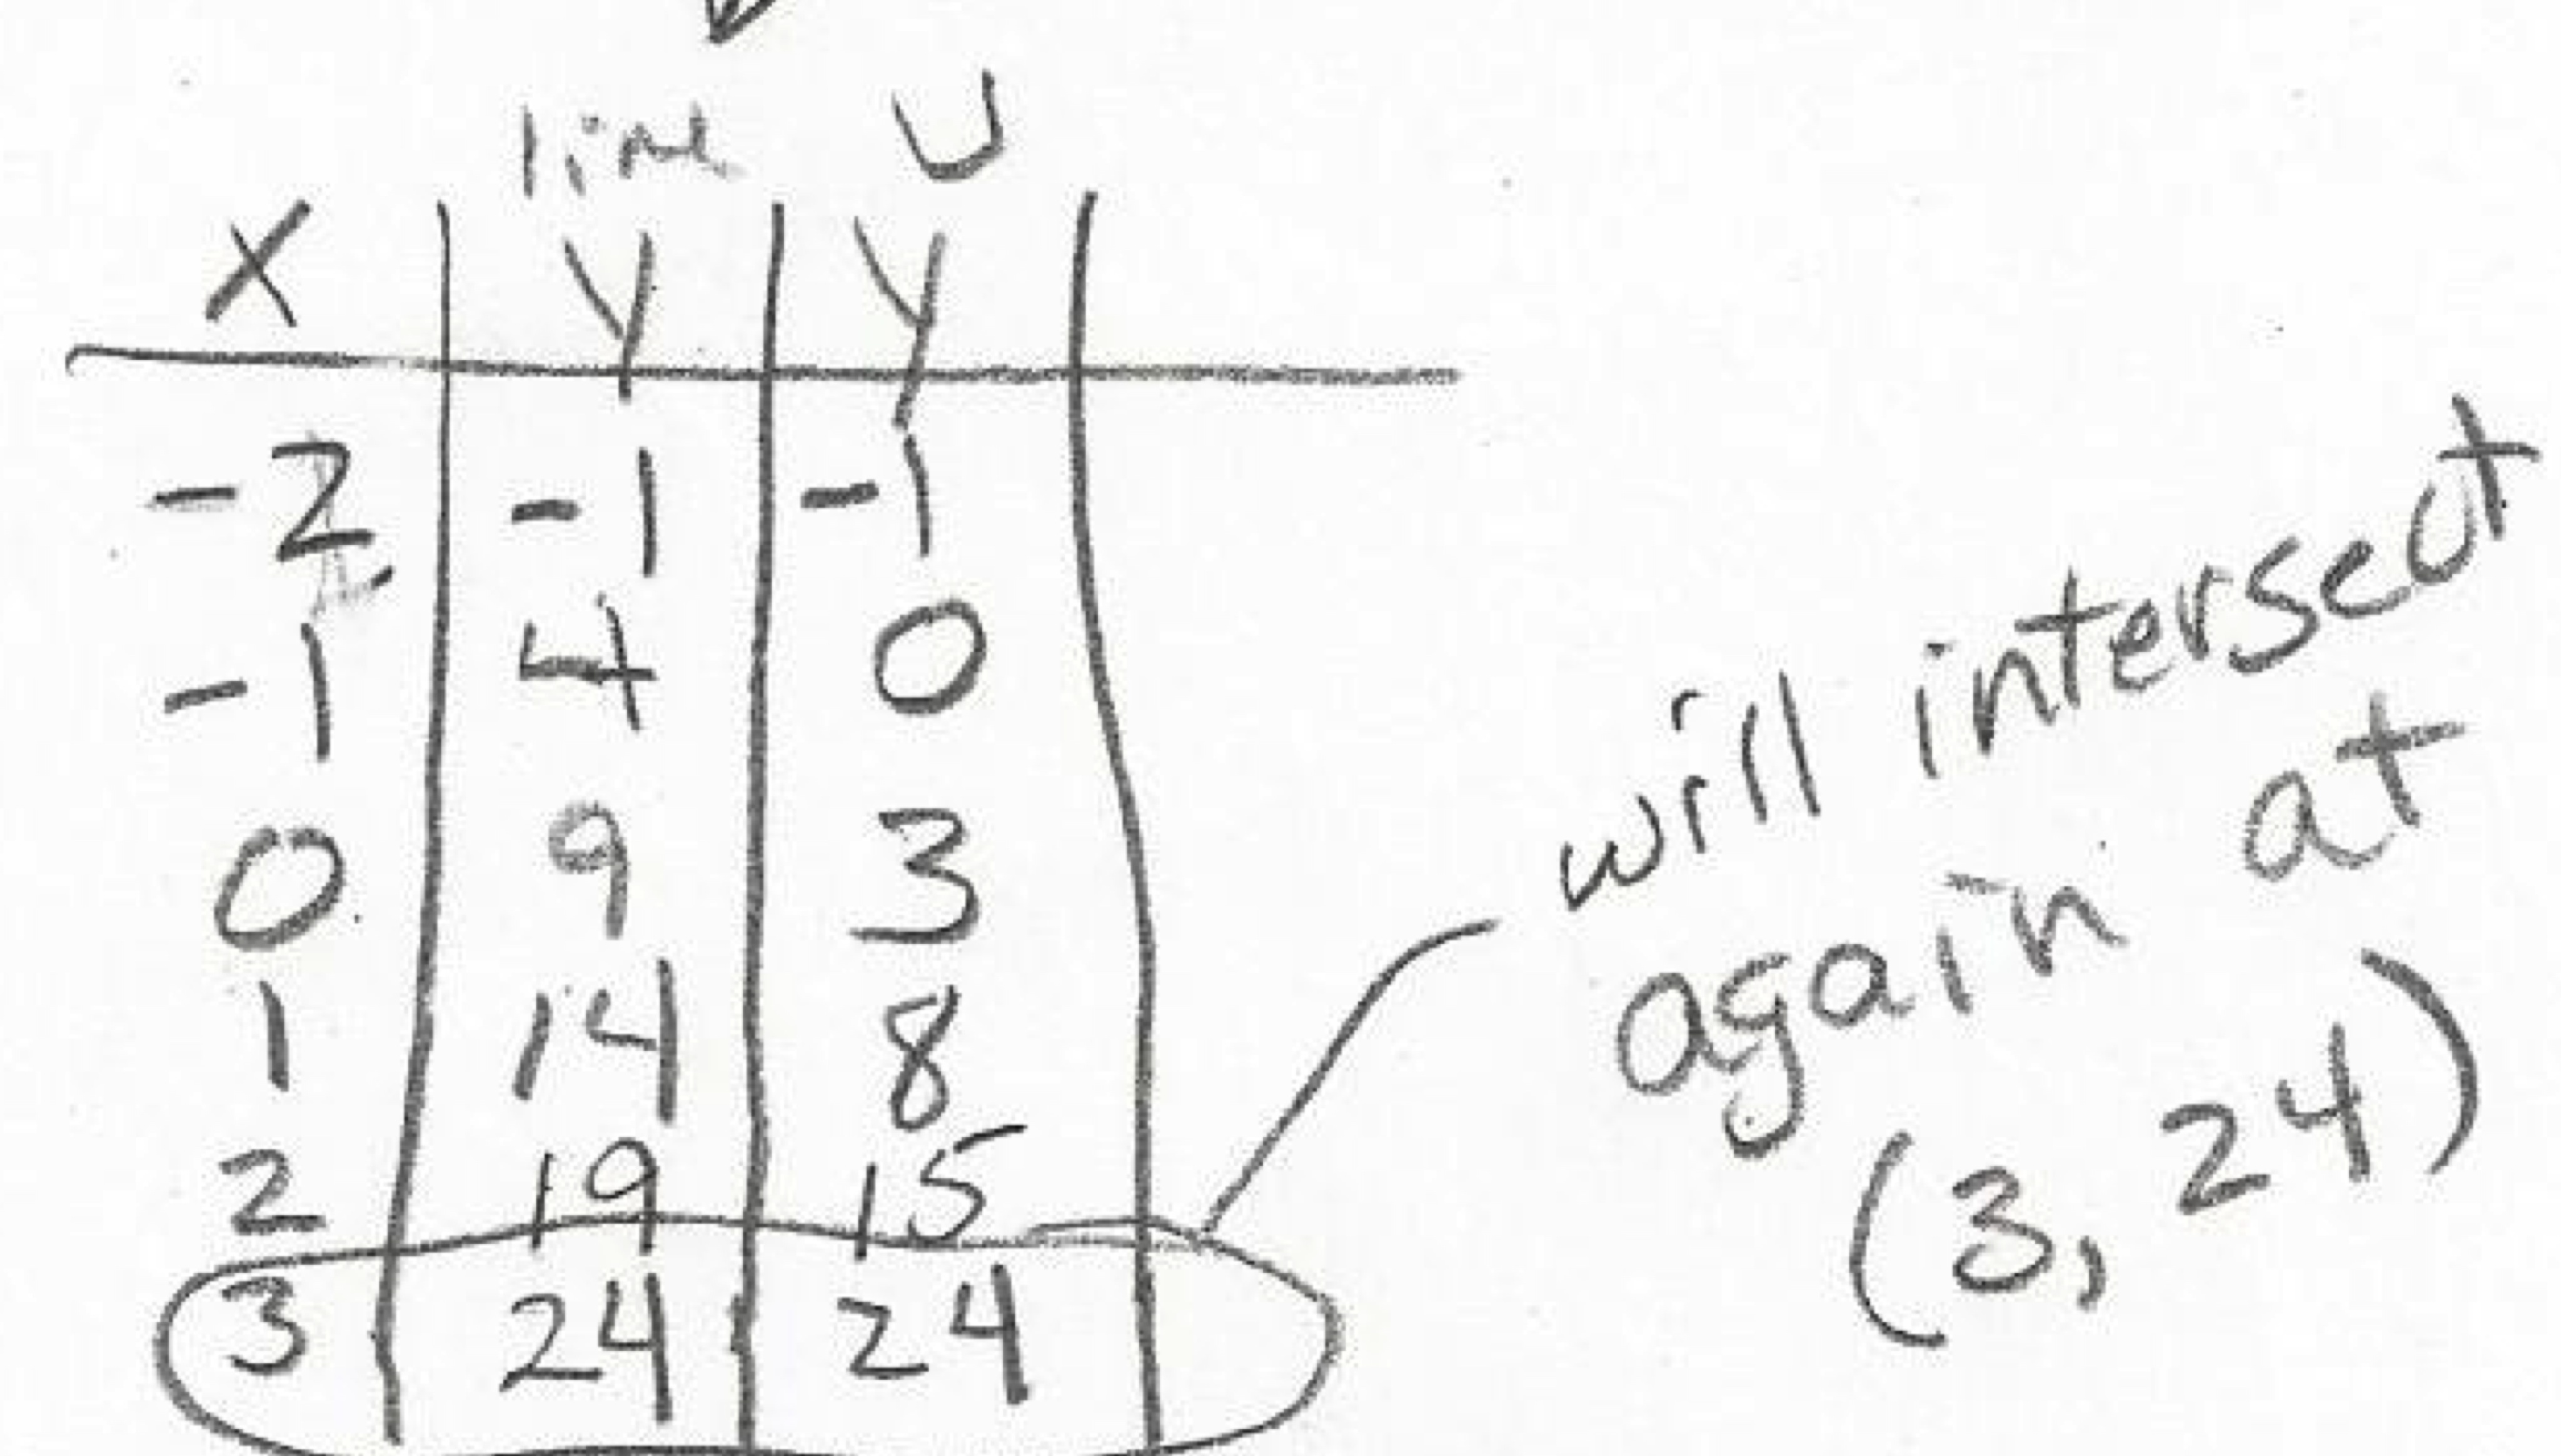 line U
x y y
-2 -1 -1
-1 4 0
0 9 3
1 14 8
2 19 15
3 24 24
will intersect
again at
(3, 24)